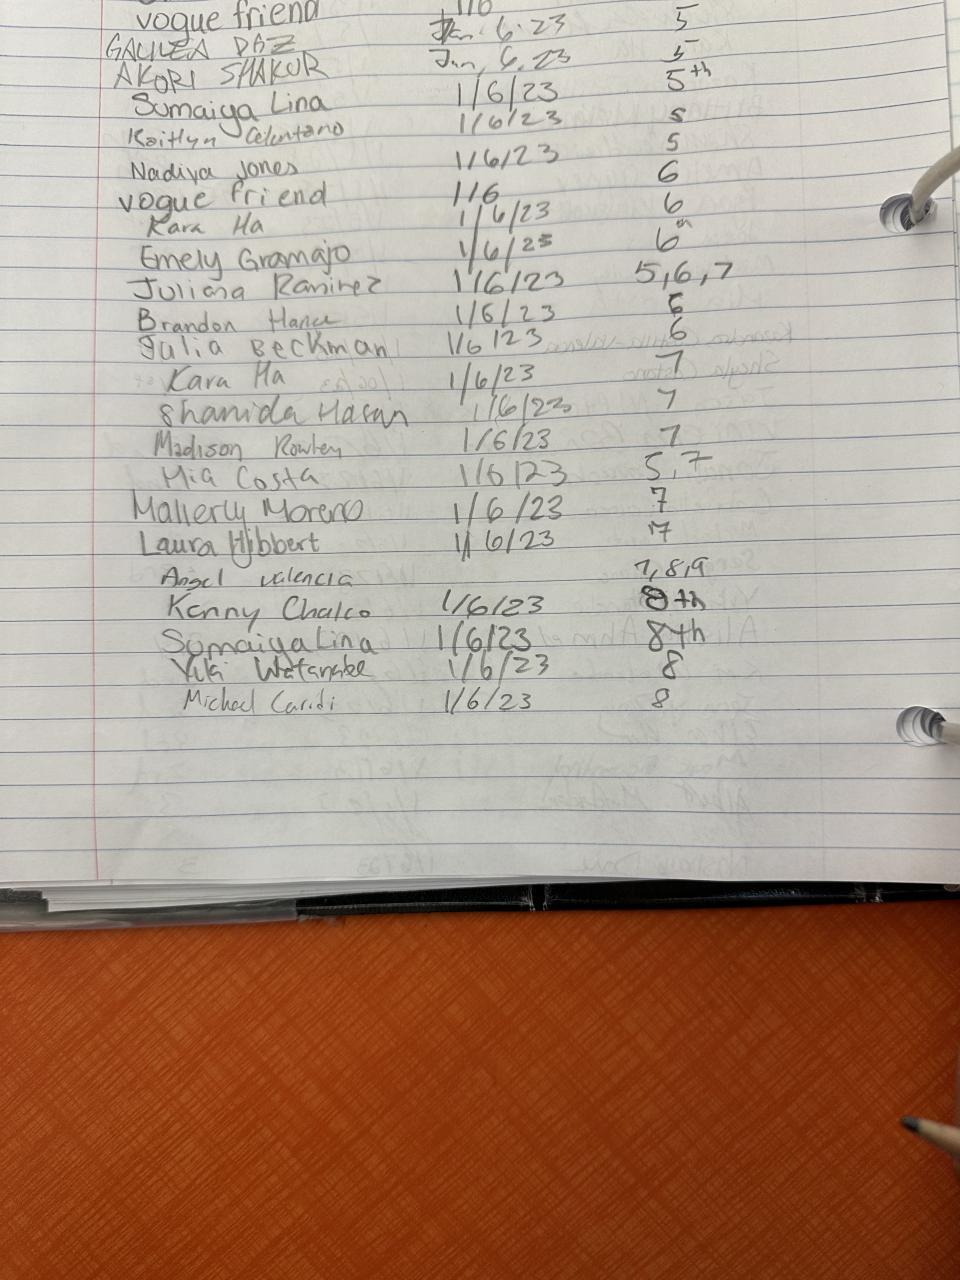 vogue friend 1/6 5
GALILEA DAZ Jan. 6. 23 5
AKORI SHAKUR Jan, 6, 23 5th
Sumaiya Lina 1/6/23 5
Kaitlyn Celentano 1/6/23 5
Nadiya Jones 1/6/23 6
vogue friend 1/6 6
Kara Ha 1/6/23 6th
Emely Gramajo 1/6/23 5,6,7
Juliana Ramirez 1/6/23 6
Brandon Hance 1/6/23 6
Julia Beckman 1/6/23 7
Kara Ha 1/6/23 7
Shanida Hasan 1/6/23 7
Madison Rowley 1/6/23 5,7
Mia Costa 1/6/23 7
Mallerly Moreno 1/6/23 7
Laura Hibbert 1/6/23
Angel Valencia 7,8,9
Kenny Chalco 1/6/23 8th
Sumaiya Lina 1/6/23 8th
Yuki Watanabe 1/6/23 8
Michael Caridi 1/6/23 8